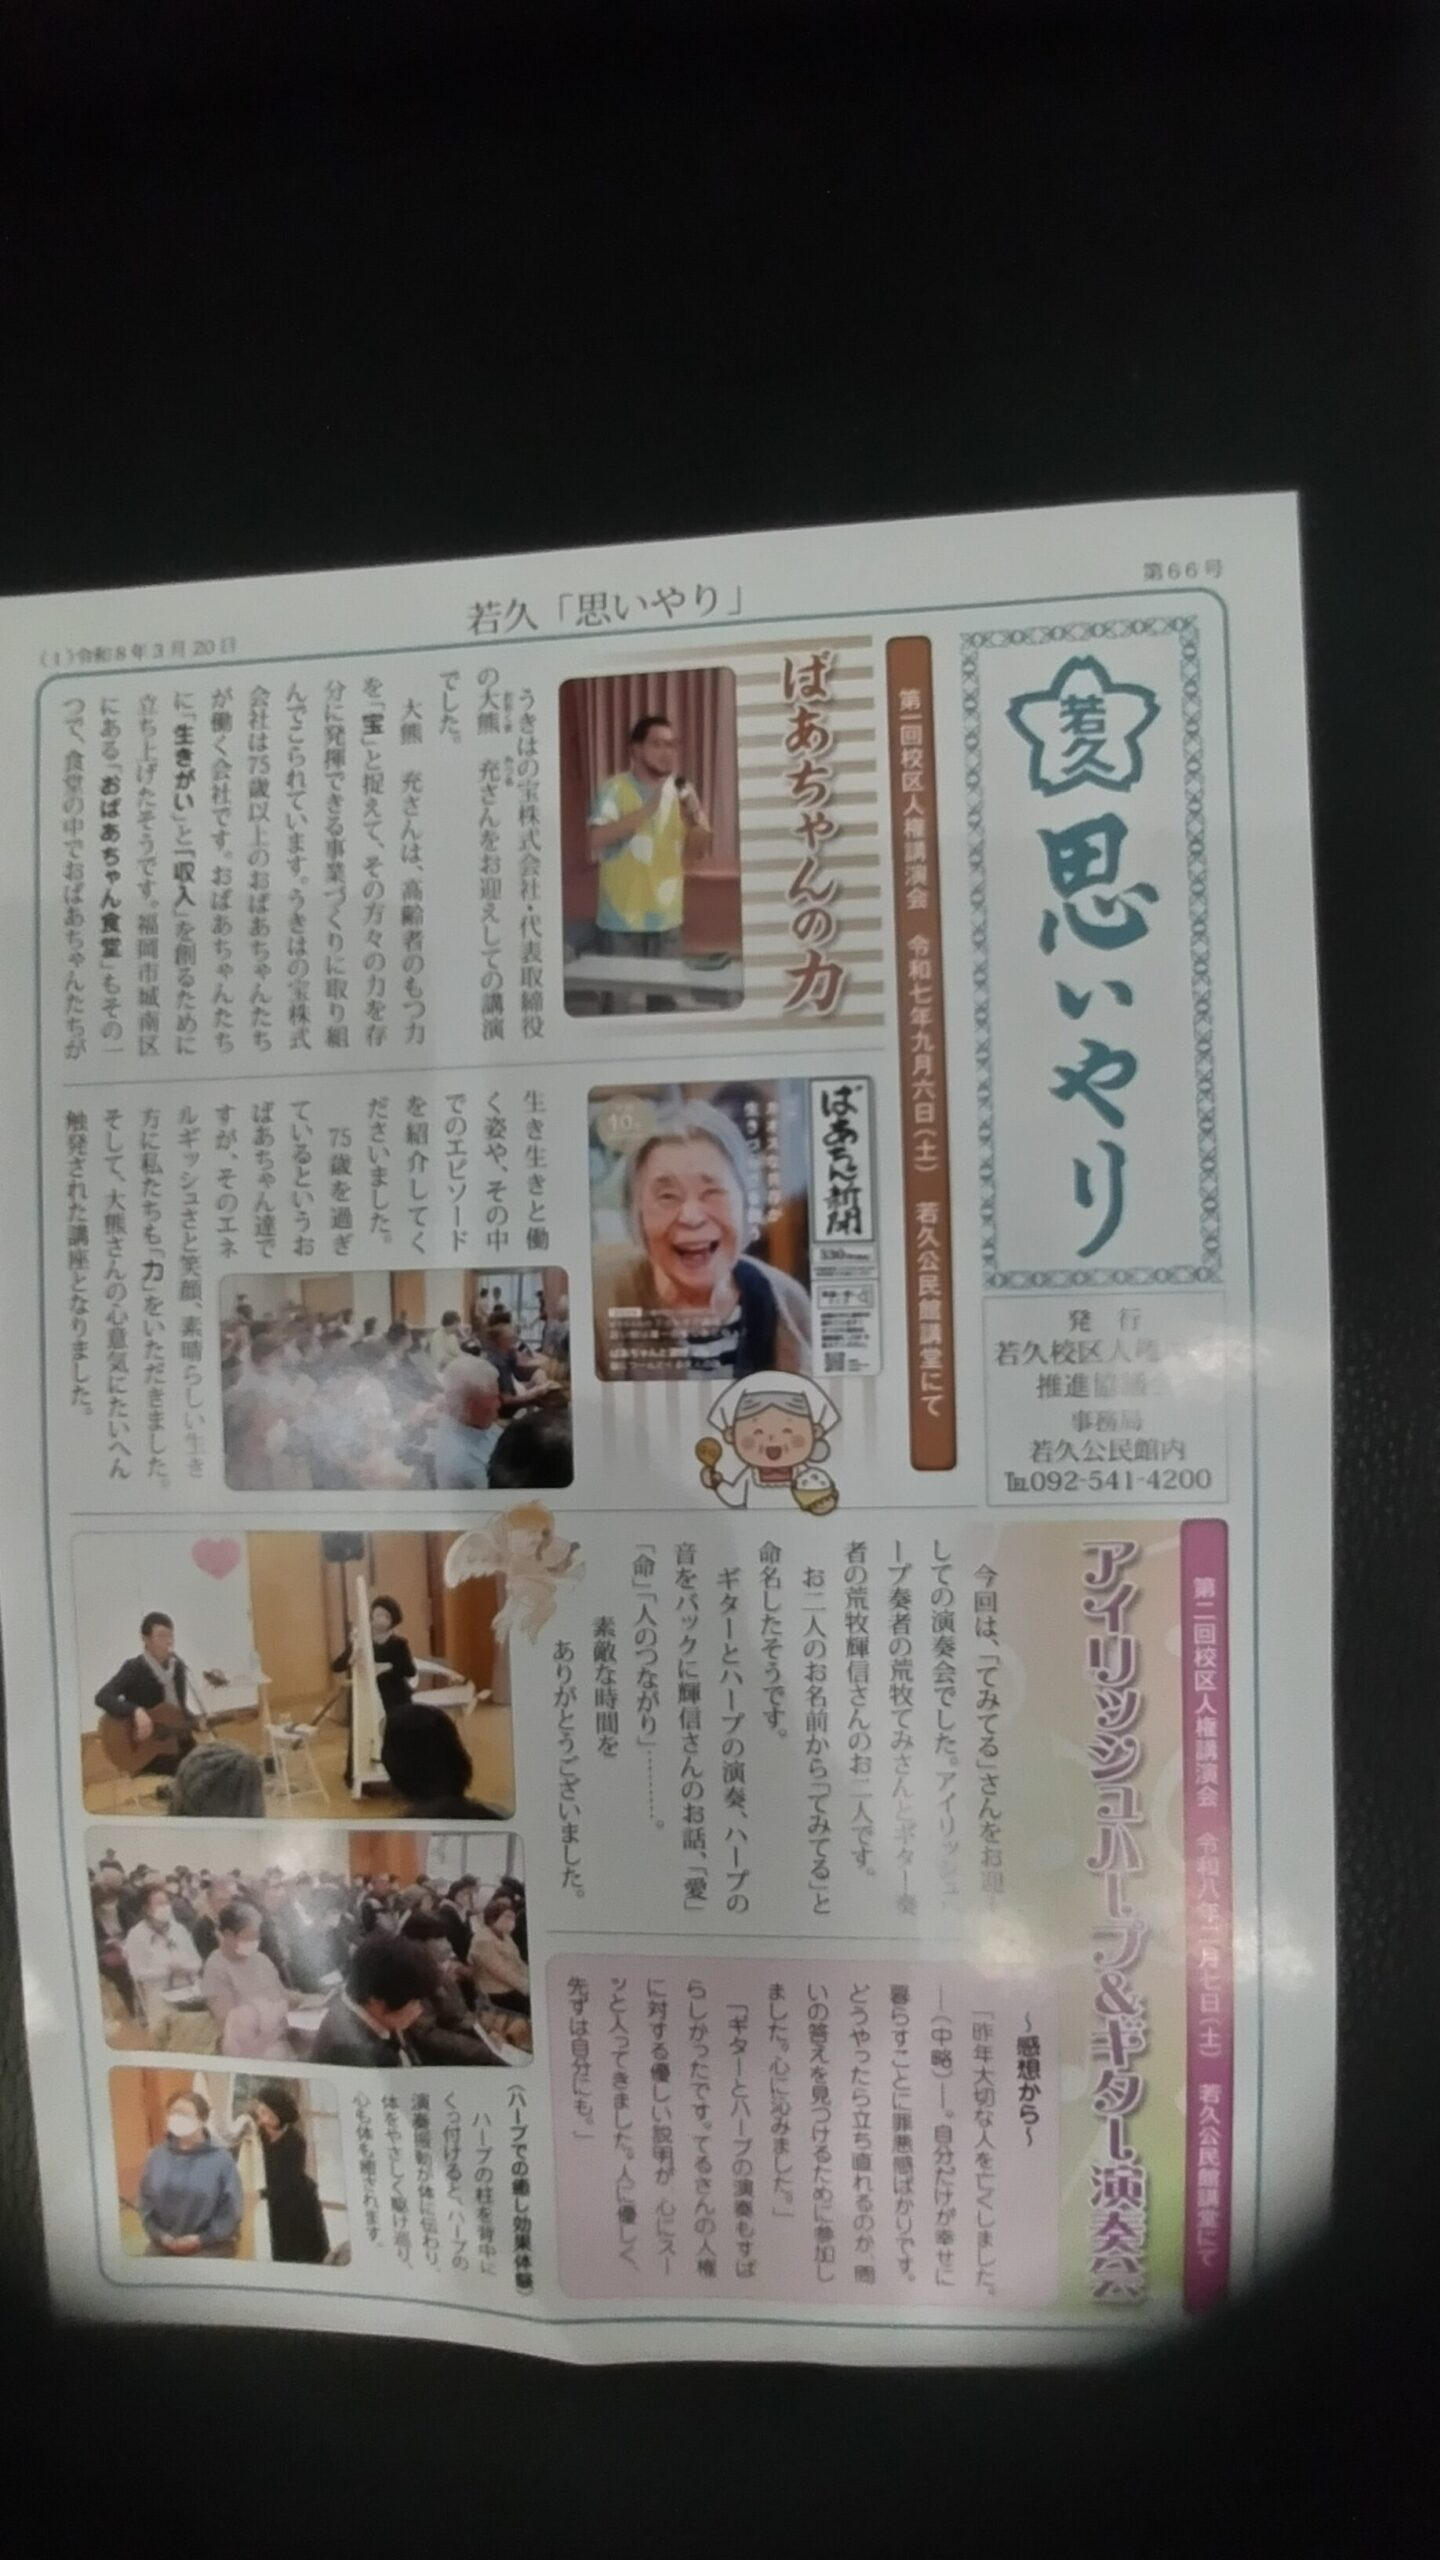 第66号
若久「思いやり」
(1)令和8年3月20日
若久
思いやり
発行
若久校区人権
推進協議会
事務局
若久公民館内
℡092-541-4200
第一回校区人権講演会 令和七年九月六日(土) 若久公民館講堂にて
ばあちゃんの力
うきはの宝株式会社・代表取締役
の大熊 充さんをお迎えしての講演
でした。
大熊 充さんは、高齢者のもつ力
を「宝」と捉えて、その方々の力を存
分に発揮できる事業づくりに取り組
んでこられています。うきはの宝株式
会社は75歳以上のおばあちゃんたち
が働く会社です。おばあちゃんたち
に「生きがい」と「収入」を創るために
立ち上げたそうです。福岡市城南区
にある「おばあちゃん食堂」もその一
つで、食堂の中でおばあちゃんたちが
ばあちゃん新聞
生き生きと働
く姿や、その中
でのエピソード
を紹介してく
ださいました。
75歳を過ぎ
ているというお
ばあちゃん達で
すが、そのエネ
ルギッシュさと笑顔、素晴らしい生き
方に私たちも「力」をいただきました。
そして、大熊さんの心意気にたいへん
触発された講座となりました。
第二回校区人権講演会 令和八年二月七日(土) 若久公民館講堂にて
アイリッシュハープ&ギター演奏会
今回は、「てみてる」さんをお迎え
しての演奏会でした。アイリッシュハ
ープ奏者の荒牧てみさんとギター奏
者の荒牧輝信さんのお二人です。
お二人のお名前から「てみてる」と
命名したそうです。
ギターとハープの演奏、ハープの
音をバックに輝信さんのお話、「愛」
「命」「人のつながり」………。
素敵な時間を
ありがとうございました。
～感想から～
「昨年大切な人を亡くしました。
―(中略)―。自分だけが幸せに
暮らすことに罪悪感ばかりです。
どうやったら立ち直れるのか、問
いの答えを見つけるために参加し
ました。心に沁みました。」
「ギターとハープの演奏もすば
らしかったです。てるさんの人権
に対する優しい説明が、心にスー
ッと入ってきました。人に優しく、
先ずは自分にも。」
(ハープでの癒し効果体験)
ハープの柱を背中に
くっ付けると、ハープの
演奏振動が体に伝わり、
体をやさしく駆け巡り、
心も体も癒されます。